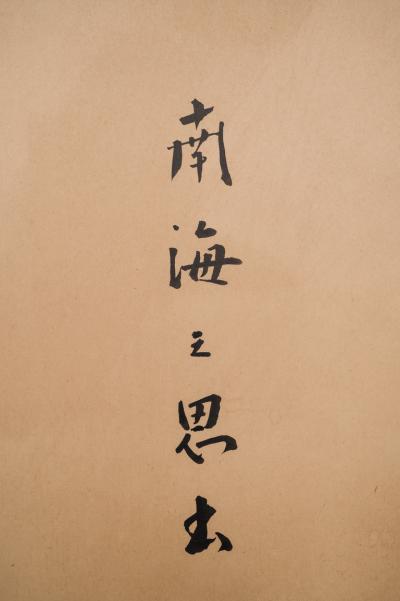 南海之思出